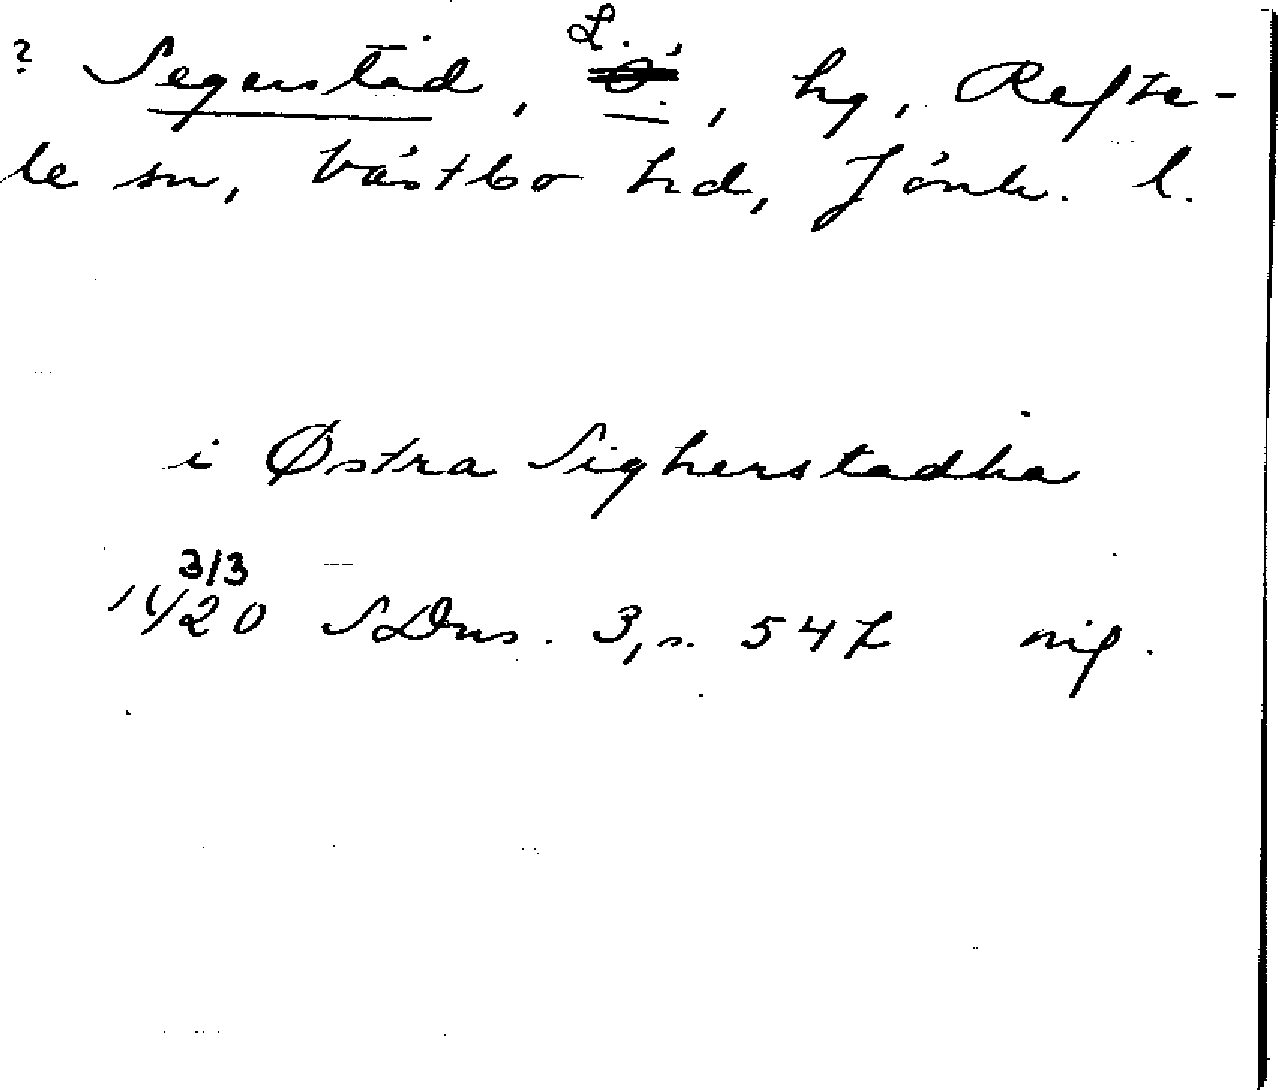 ? Segerstad, L., hg, Refte-
le sn, Västbo hd, Jönk. l.
i Østra Sigherstadha
1420 3/3 SDns. 3, s. 547